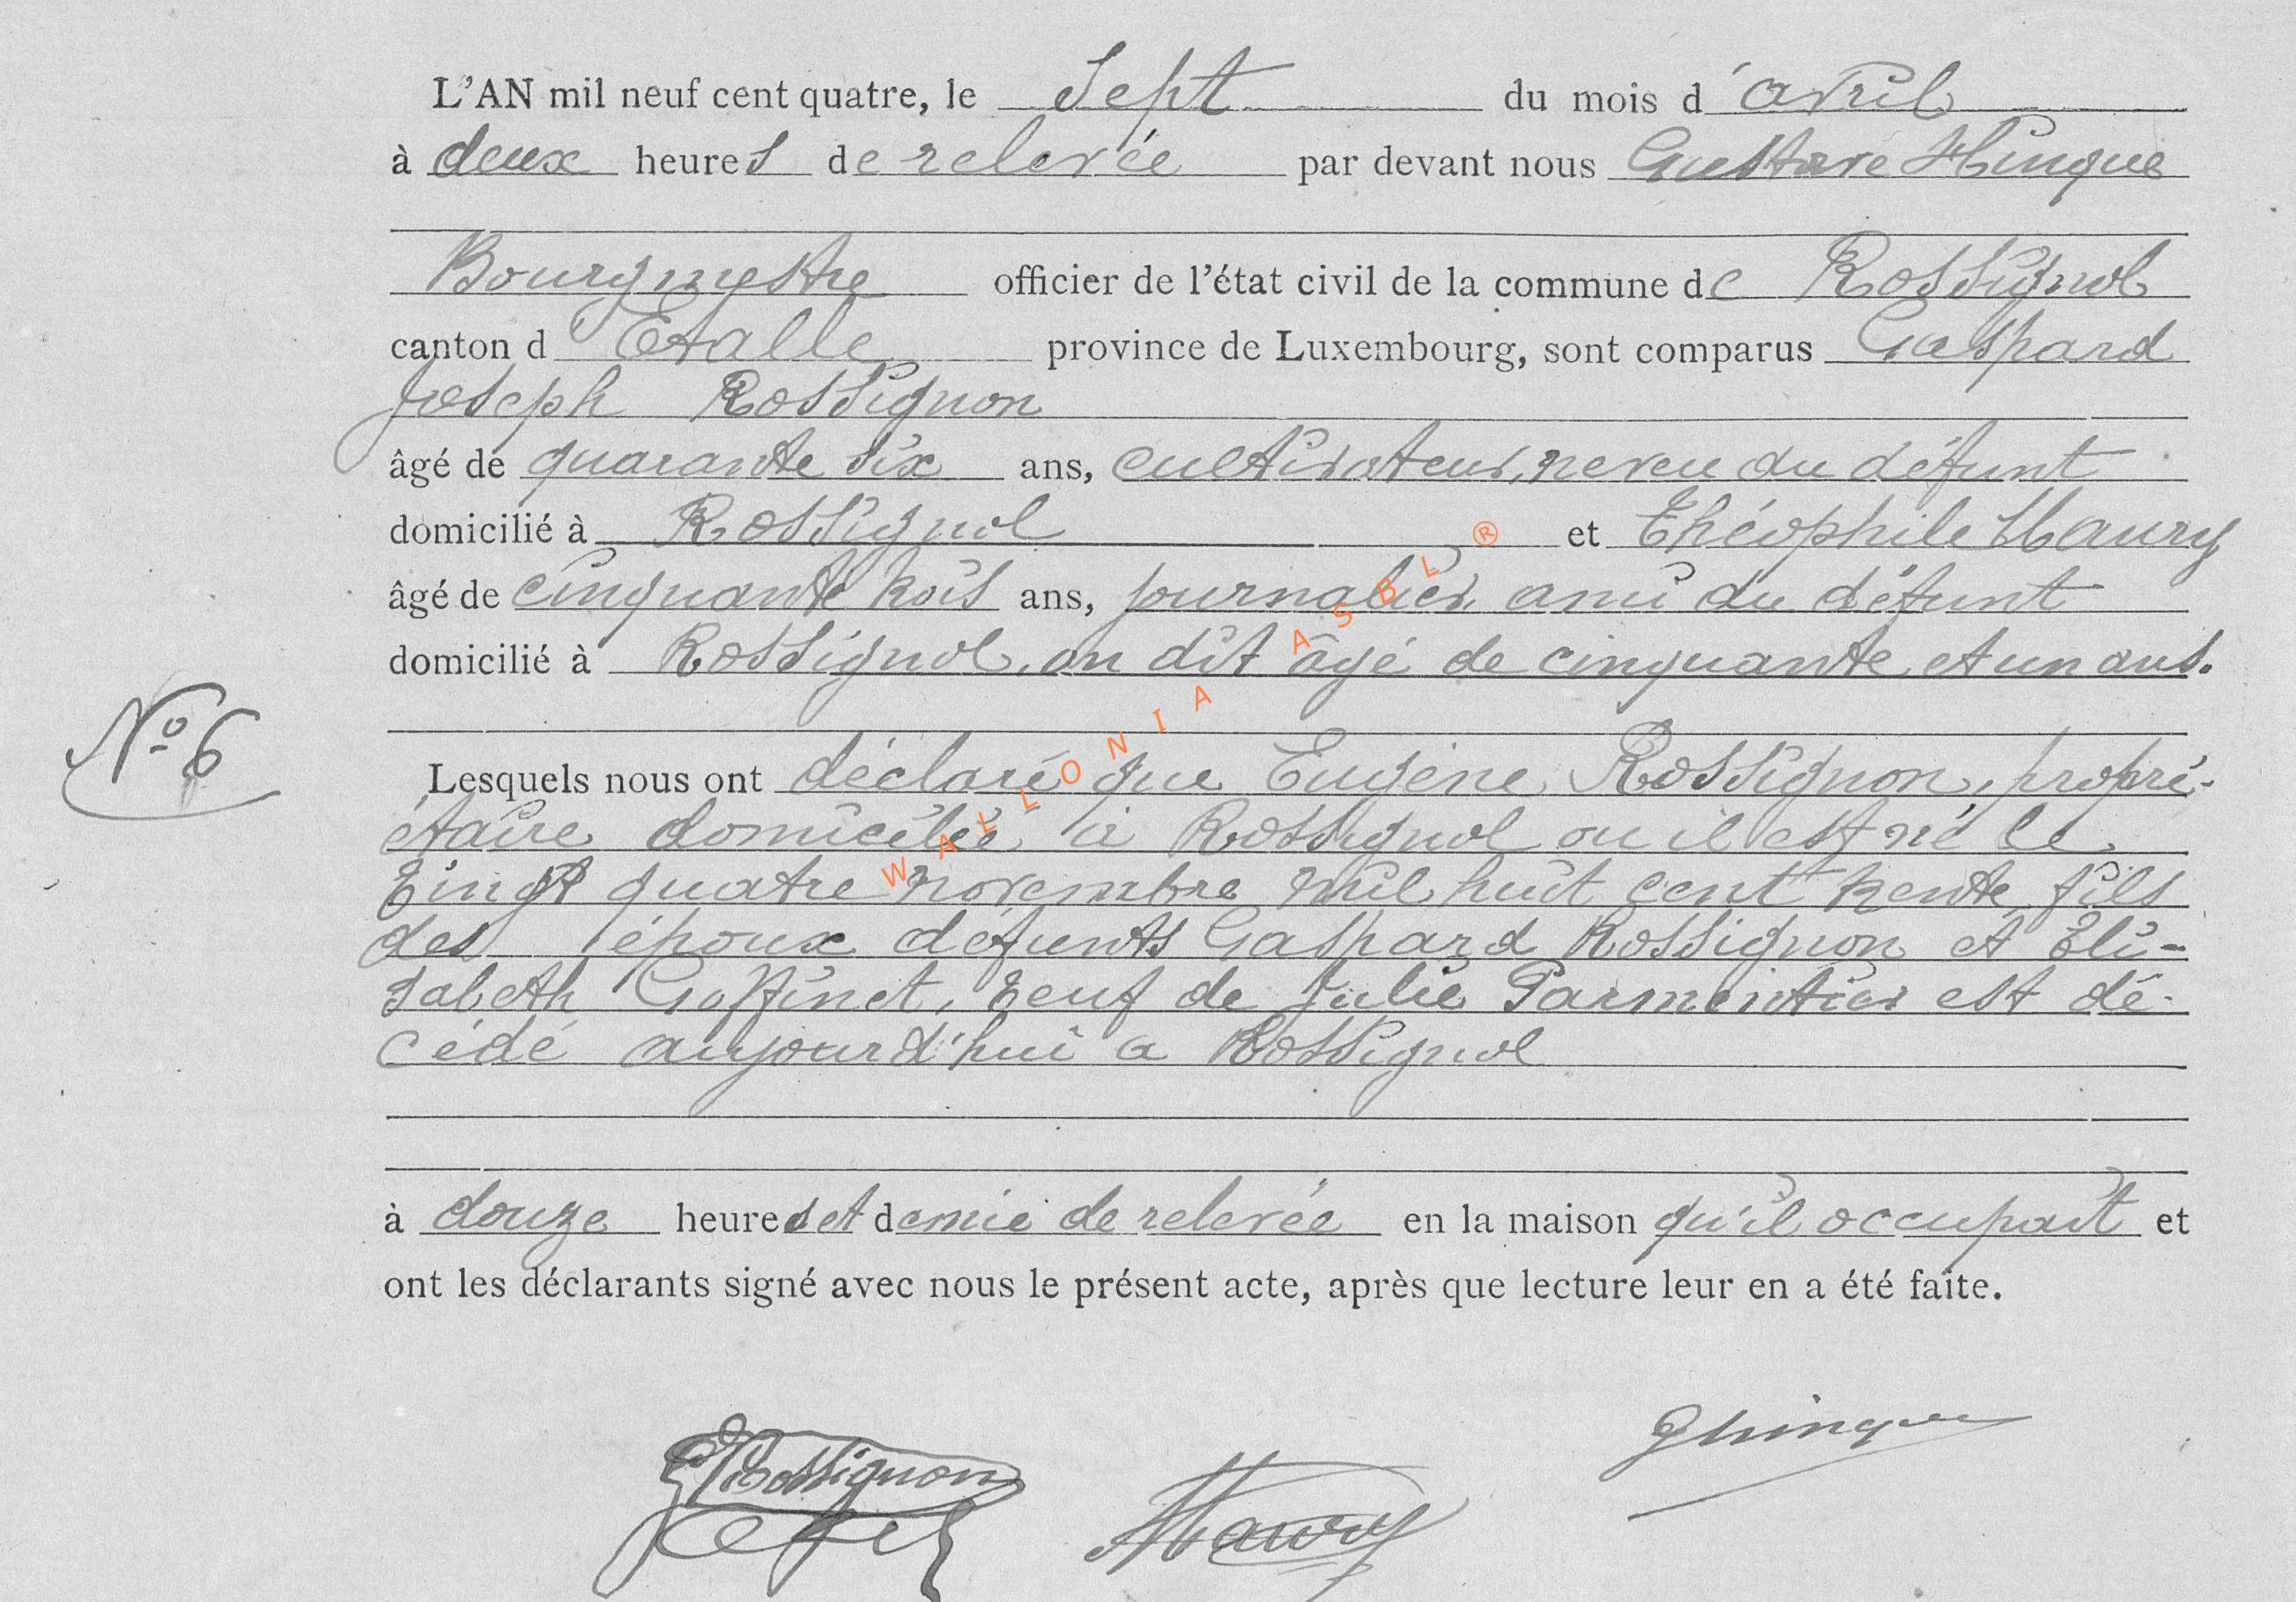 L'AN mil neuf cent quatre, le Sept du mois d'avril
à deux heures de relevée par devant nous Gustave Hinque
Bourgmestre officier de l'état civil de la commune de Rossignol
canton d'Etalle province de Luxembourg, sont comparus Gaspard
Joseph Rossignon
âgé de quarante six ans, cultivateur, neveu du défunt
domicilié à Rossignol et Théophile Maury
âgé de cinquante trois ans, journalier, ami du défunt
domicilié à Rossignol, on dit âgé de cinquante et un ans.
N° 6
Lesquels nous ont déclaré que Eugène Rossignon, propri-
étaire domicilié à Rossignol ou il est né le
vingt quatre novembre mil huit cent trente, fils
des époux défunts Gaspard Rossignon et Eli-
sabeth Goffinet, veuf de Julie Parmentier est dé-
cédé aujourd'hui a Rossignol
à douze heures et demie de relevée en la maison qu'il occupait et
ont les déclarants signé avec nous le présent acte, après que lecture leur en a été faite.
GHinque
Rossignon
Maury
WALLONIA ASBL ®